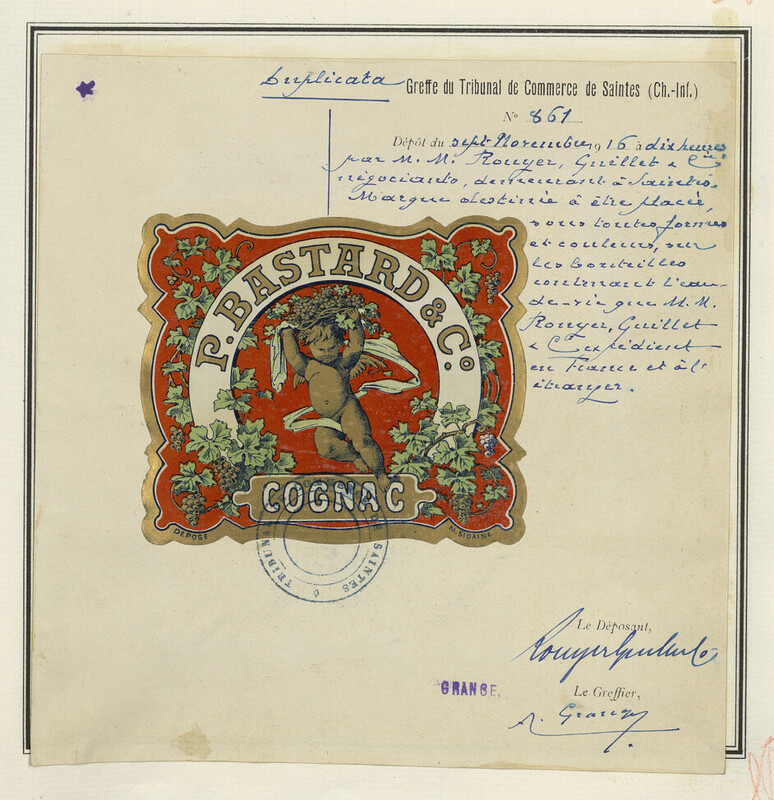 Duplicata
Greffe du Tribunal de Commerce de Saintes (Ch.-Inf.)
N° 861
Dépôt du sept Novembre 1916 à dix heures
par M. M. Rouyer, Guillet & Cie
négociants, demeurant à Saintes.
Marque destinée à être placée,
sous toutes formes
et couleurs, sur
les bouteilles
contenant l'eau-
de-vie que M. M.
Rouyer, Guillet
& Cie expédient
en France et à l'
étranger.
P. BASTARD & Co.
COGNAC
DEPOSE
TRIBUN
DE SAINTES
Le Déposant,
Rouyer Guillet & Co
GRANGE.
Le Greffier,
A. Grange